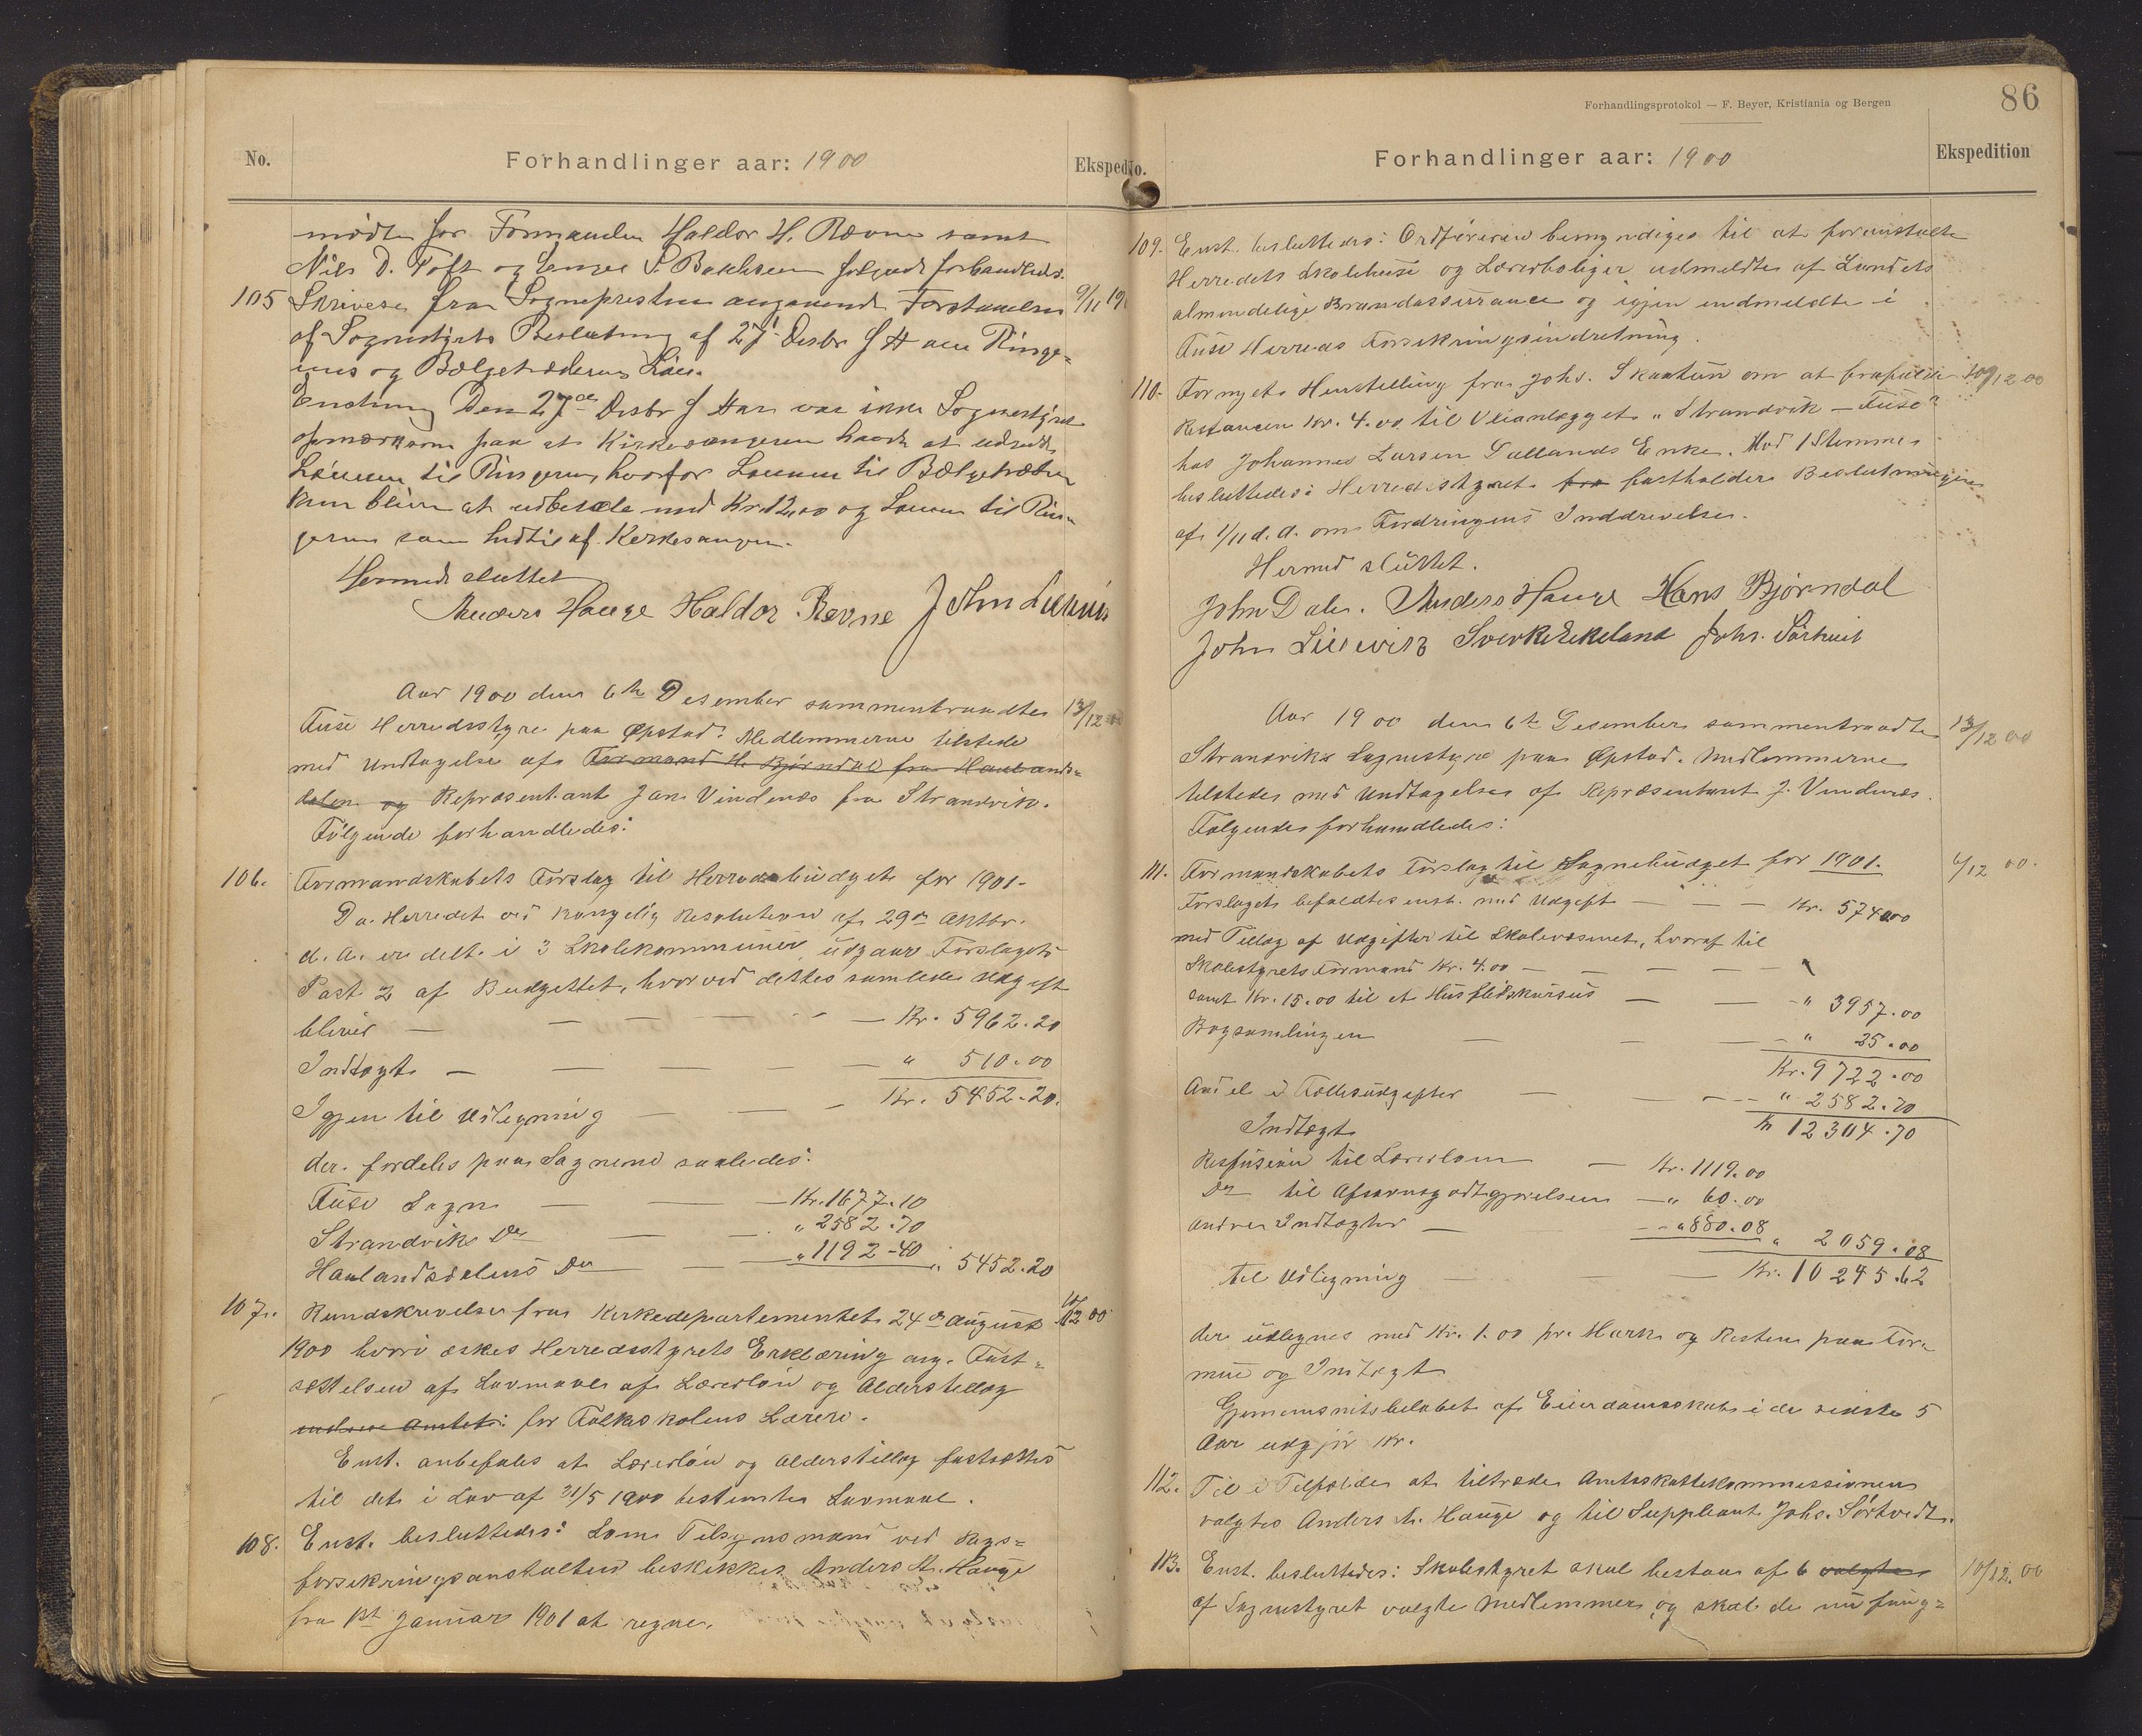 No.
Forhandlinger aar: 1900
Eksped
mødte for Formanden Haldor H. Rævne samt
Nils D. Toft og følgende forhandledes.
105 Skrivese fra Sognepresten angaaende Forstaaelsen
9/11 19
af Sognestyrets Beslutning af 27de Desbr f A om Ringe=
rens og Bælgetrædernes Løn.
Den 27de Desbr f Aar var ikke Sognestyret
opmærksom paa at Kirkesangeren havde at udrede
Lønnen til Ringeren, hvorfor Lønnen til Bælgetræderen
kun bliver at udbetale med Kr. 12,00 og Lønnen til Rin=
geren som hidtil af Kerkesangeren.
Hermed sluttet
Anders Hauge Haldor Rævne John
Aar 1900 den 6te Desember sammentraadte
13/12 00
Fuse Herredsstyre paa Øpstad. Medlemmerne tilstede
med Undtagelse af Formand H. Bjørndal fra Haalands=
dalen og Repræsentant Jan Vindenes fra Strandvik.
Følgende forhandledes:
106. Formandskabets Forslag til Herredsbudget for 1901.
Da Herredet ved kongelig Resolution af 29de Oktbr.
d. A. er delt i 3 Skolekommuner, udgaar Forslagets
Post 2 af Budgettet, hvorved dettes samlede Udgift
bliver — — — — — Kr. 5962.20
Indtægt — — — — — " 510.00
Igjen til Udligning — — — Kr. 5452.20.
der fordeles paa Sognene saaledes:
Fuse Sogn — — Kr. 1677.10
Strandvik Do — — " 2582.70
Haalandsdalens Do — — " 1192-40 " 5452.20
107. Rundskrivelse fra Kirkedepartementet 24de August
10/12 00
1900 hvori æskes Herredsstyrets Erklæring ang. Fast=
sættelsen af Lavmaal af Lærerløn og Alderstillæg
Amtet: for Folkeskolens Lærere.
Enst. anbefales at Lærerløn og Alderstillæg fastsættes
til det i Lov af 31/5 1900 bestemte Lavmaal.
108. Enst. besluttedes: Som Tilsynsmand ved Rigs=
forsikringsanstalten beskikkes Anders A. Hauge
fra 1st Januar 1901 at regne.
Forhandlingsprotokol — F. Beyer, Kristiania og Bergen
86
No.
Forhandlinger aar: 1900
Ekspedition
109. Enst. besluttedes: Ordføreren bemyndiges til at foranstalte
Herredets Skolehuse og Lærerboliger udmeldte af Landets
almindelige Brandassurance og igjen indmeldte i
Fuse Herreds Forsikringsindretning.
110. Fornyet Henstilling fra Johs. Skaatun om at frafalde
10/12 00
Restancen Kr. 4.00 til Veianlægget "Strandvik — Fuse"
hos Johannes Larsen Gullands Enke. Mod 1 Stemme
besluttedes: Herredsstyret fra fastholder Beslutningen
af 1/11 d. A. om Fordringens Inddrivelse.
Hermed sluttet.
John Dale. Anders Hauge Hans Bjørndal
John Sverke Ekeland Johs. Sørtveit
Aar 1900 den 6te Desember sammentraadte
13/12 00
Strandviks Sognestyre paa Øpstad. Medlemmerne
tilstede med Undtagelse af Repræsentant J. Vindenes.
Følgende forhandledes:
111. Formandskabets Forslag til Sognebudget for 1901.
6/12 00.
Forslaget befaldtes enst. med Udgift — — — Kr. 5740.00
med Tillæg af Udgifter til Skolevæsenet, hvoraf til
Skolestyrets Formand Kr. 4.00 — — — — —
samt Kr. 15.00 til et Husflidskursus — — " 3957.00
Bogsamlingen — — — " 25.00
Kr. 9722.00
Andel i Fællesudgifter — — — " 2582.70
Indtægt
Kr 12304.70
Refusion til Lærerløn — Kr. 1119.00
Do til Afsavnsgodtgjørelsen — " 60.00
Andre Indtægter — " 880.08 " 2059.08
til Udligning — — Kr. 10245.62
der udlignes med Kr. 1.00 pr. Mark og Resten paa For=
mue og Indtægt
Gjennemsnitsbeløbet af Eiendomsskat i de sidste 5
Aar udgjør Kr.
112. Til i Tilfælde at tiltræde Amtsskattekommissionen
valgtes Anders A. Hauge og til Suppleant Johs. Sørtvedt.
113. Enst. besluttedes: Skolestyret skal bestaa af 6 valgte
10/12. 00
af Sognestyret valgte Medlemmer, og skal de nu fung=